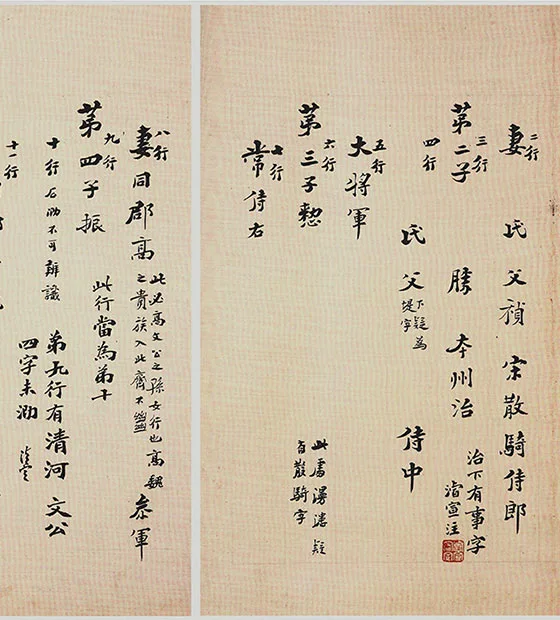 二行
妻 氏 父禎 宋散騎侍郎
三行
第二子 勝 本州治
治下有事字
濬宣注
四行
氏 父 侍中
下疑為
堤字
五行
大將軍
六行
第三子愨
此處漫漶疑
有散騎字
七行
常侍右
八行
妻同郡高
此必高文公之孫女行也高魏
之貴族入北齊不
參軍
九行
第四子振
此行當為第十
十行石泐不可辨識
第九行有清河 文公
四字未泐
十一行